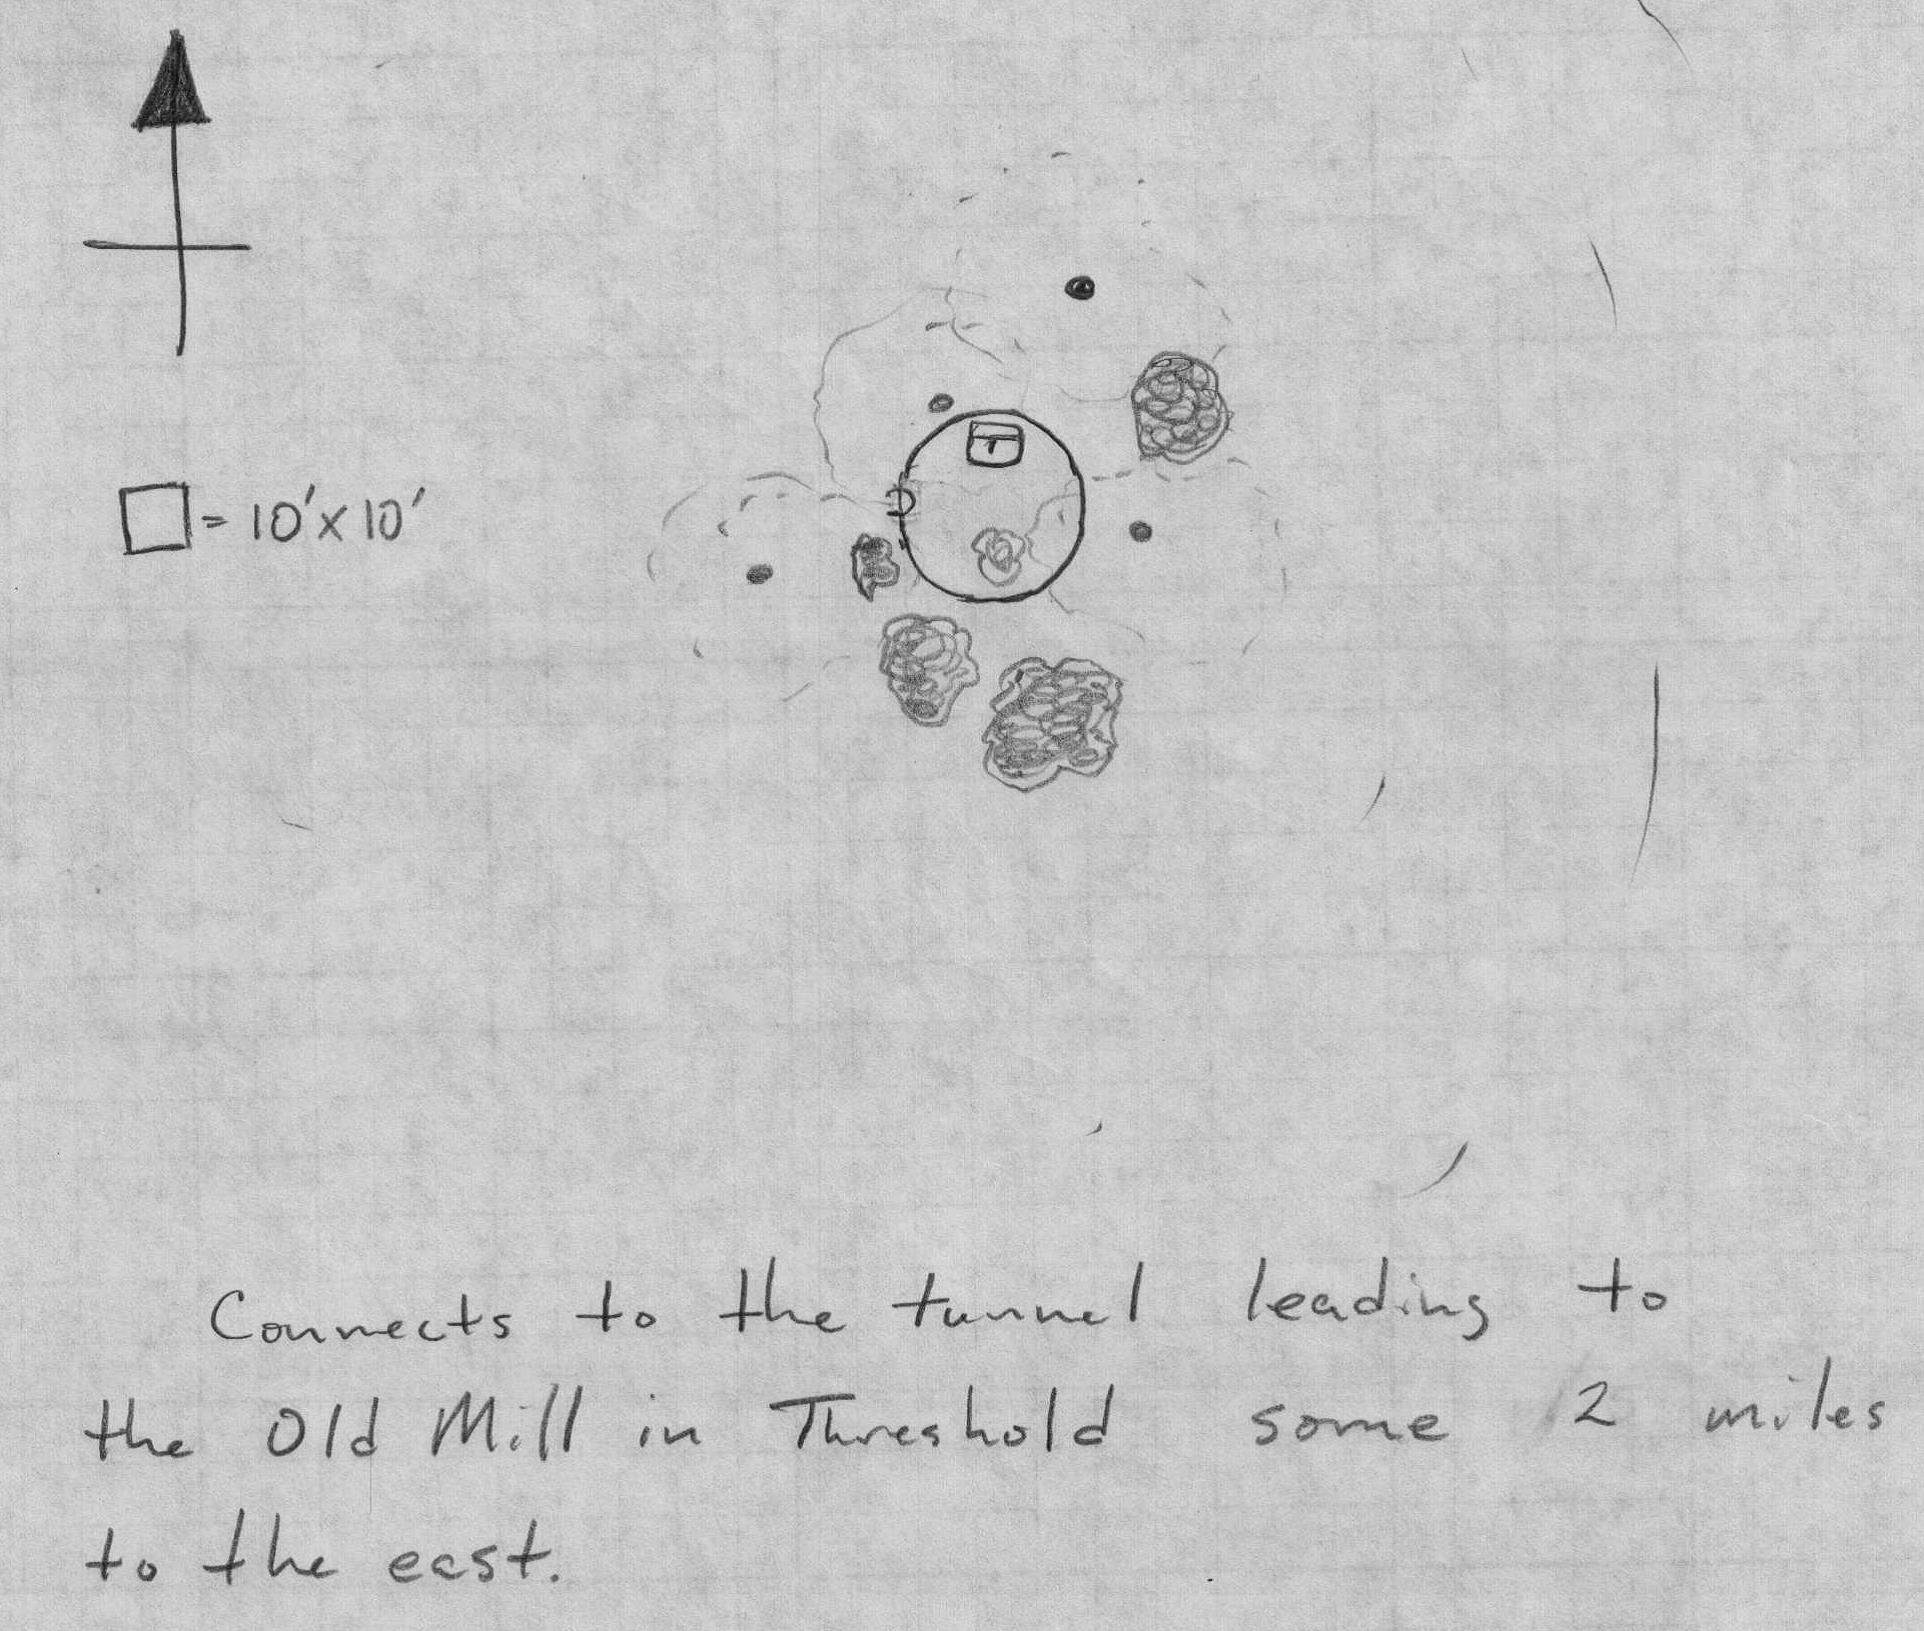 = 10'x10'
Connects to the tunnel leading to
the Old Mill in Threshold some 2 miles
to the east.